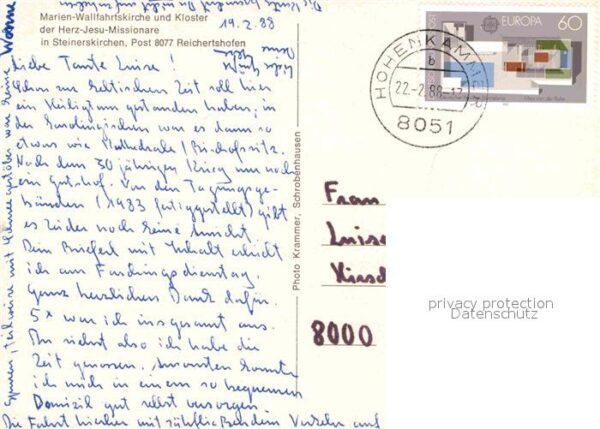 Marien-Wallfahrtskirche und Kloster
der Herz-Jesu-Missionare
in Steinerskirchen, Post 8077 Reichertshofen
19.2.88
Liebe Tante Luise!
Schon zur keltischen Zeit soll hier
ein Heiligtum gestanden haben, in
der Karolingischen war es dann so
etwas wie Kathedrale / Bischofssitz.
Nach dem 30 jährigen Krieg nur noch
ein Gutshof. Von den Tagungsge-
bäuden (1983 fertiggestellt) gibt
es leider noch keine Ansicht.
Dein Brieferl mit Inhalt erhielt
ich am Faschingsdienstag.
Ganz herzlichen Dank dafür.
5x war ich insgesamt aus.
Du siehst also ich habe die
Zeit genossen. Ansonsten konnte
ich mich in einem so bequemen
Domizil gut selbst versorgen
Die Fahrt hierher mit zähfließendem Verkehr und
teilweise mit Schneegestöber war keine Wonne
Photo Krammer, Schrobenhausen
EUROPA 60
HOHENKAMMER
b
22.-2.88-17
8051
Frau
Luise
Hirsch
8000
privacy protection
Datenschutz